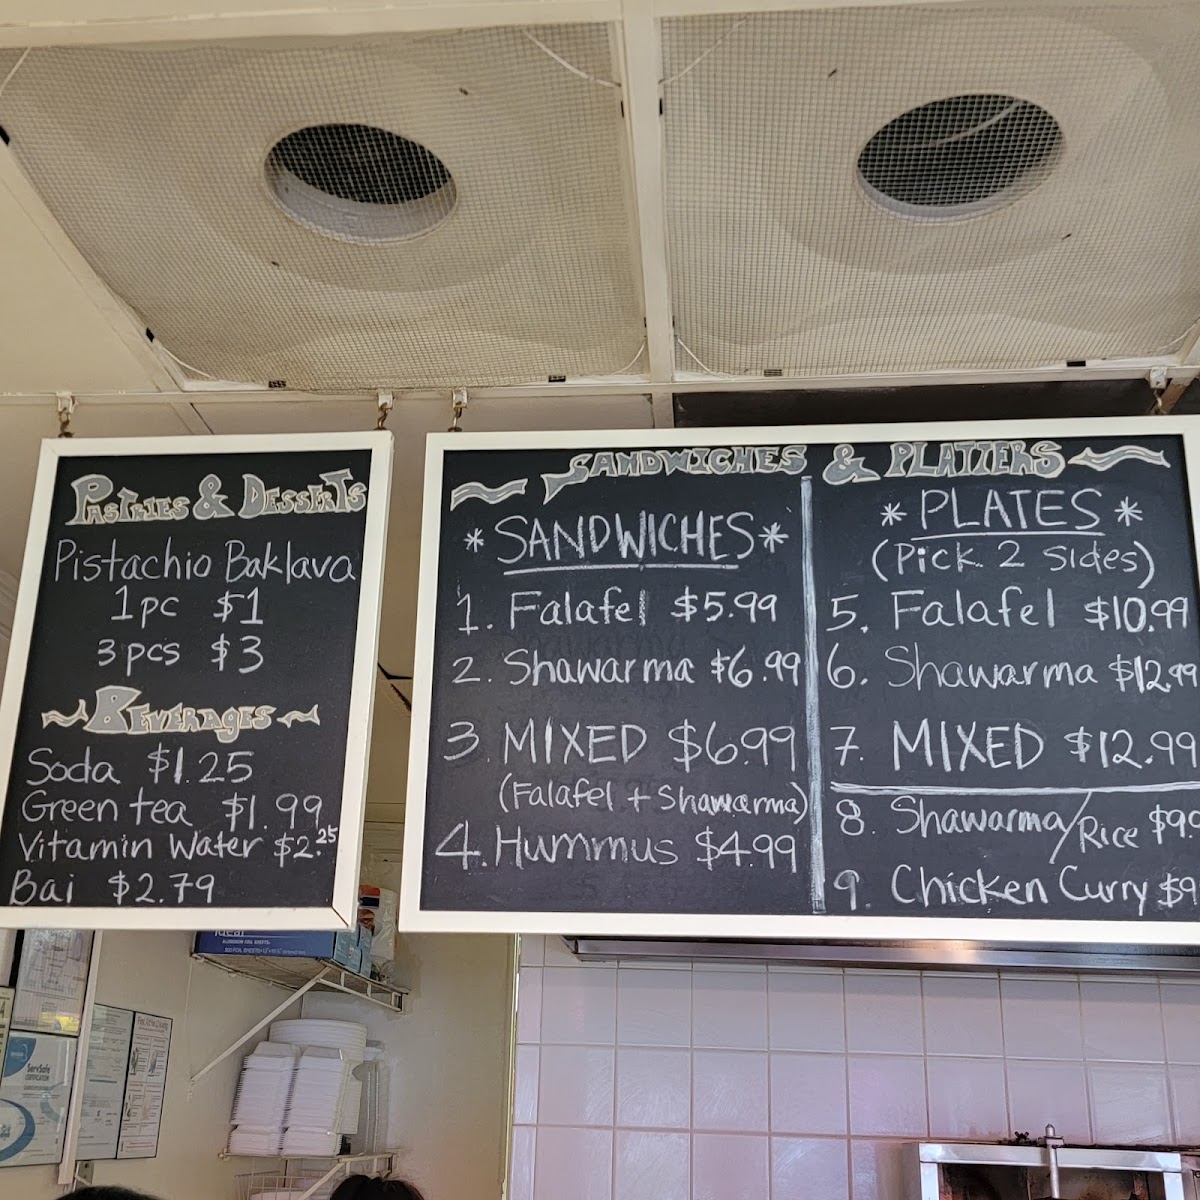 Pastries & Desserts
Pistachio Baklava
1pc $1
3pcs $3
Beverages
Soda $1.25
Green tea $1.99
Vitamin Water $2.25
Bai $2.79
SANDWICHES & PLATTERS
* SANDWICHES *
1. Falafel $5.99
2. Shawarma $6.99
3. MIXED $6.99
(Falafel + Shawarma)
4. Hummus $4.99
* PLATES *
(Pick 2 sides)
5. Falafel $10.99
6. Shawarma $12.99
7. MIXED $12.99
8. Shawarma/Rice $9.9
9. Chicken Curry $9
ServSafe
CERTIFICATION